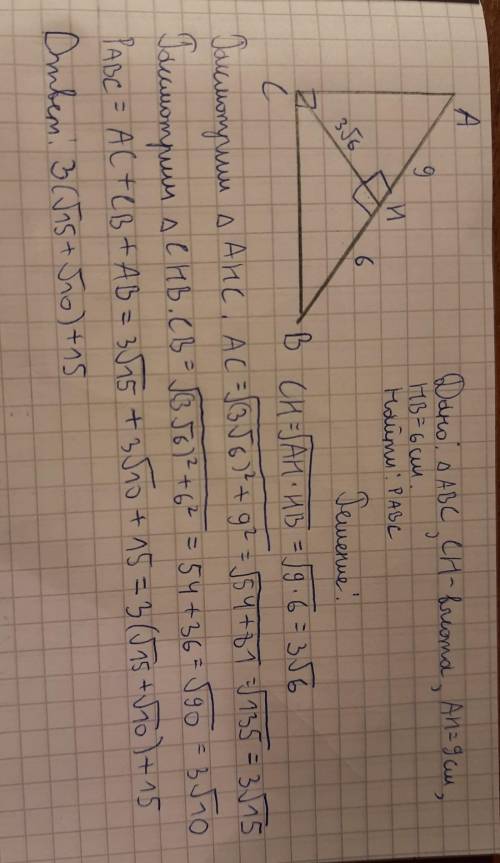 Дано: △ ABC, CH - высота, AH = 9 см,
HB = 6 см.
Найти: PABC
Решение:
A
9
H
3√6
6
C
B
CH = √AH · HB = √9 · 6 = 3√6
Рассмотрим △ AHC. AC = √(3√6)² + 9² = √54 + 81 = √135 = 3√15
Рассмотрим △ CHB. CB = √(3√6)² + 6² = 54 + 36 = √90 = 3√10
PABC = AC + CB + AB = 3√15 + 3√10 + 15 = 3(√15 + √10) + 15
Ответ: 3(√15 + √10) + 15